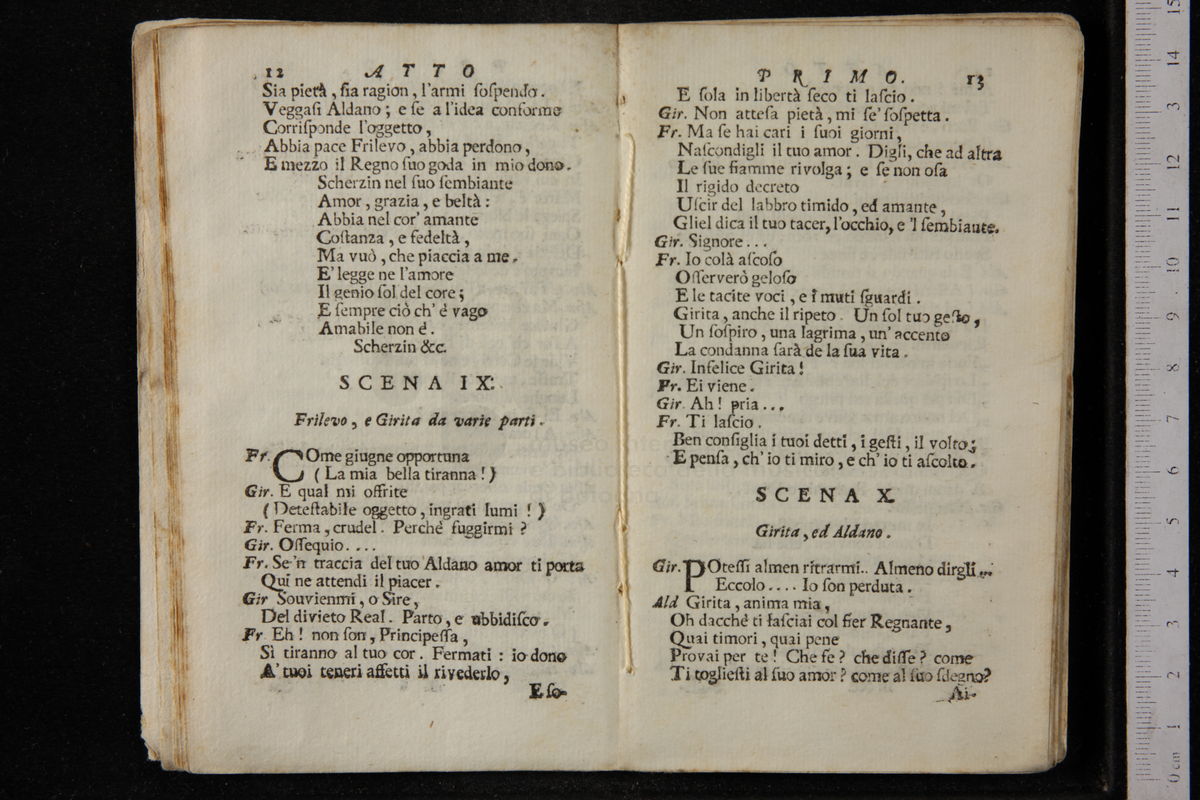 12 ATTO
Sia pietà, sia ragion, l'armi sospendo.
Veggasi Aldano; e se a l'idea conforme
Corrisponde l'oggetto,
Abbia pace Frilevo, abbia perdono,
E mezzo il Regno suo goda in mio dono.
Scherzin nel suo sembiante
Amor, grazia, e beltà:
Abbia nel cor' amante
Costanza, e fedeltà,
Ma vuò, che piaccia a me.
E' legge ne l'amore
Il genio sol del core;
E sempre ciò ch' è vago
Amabile non è.
Scherzin &c.
SCENA IX.
Frilevo, e Girita da varie parti.
Fr. COme giugne opportuna
(La mia bella tiranna!)
Gir. E qual mi offrite
(Detestabile oggetto, ingrati lumi!)
Fr. Ferma, crudel. Perchè fuggirmi?
Gir. Ossequio....
Fr. Se'n traccia del tuo Aldano amor ti porta
Qui ne attendi il piacer.
Gir Souvienmi, o Sire,
Del divieto Real. Parto, e ubbidisco.
Fr Eh! non son, Principessa,
Sì tiranno al tuo cor. Fermati: io dono
A' tuoi teneri affetti il rivederlo,
E so-
PRIMO. 13
E sola in libertà seco ti lascio.
Gir. Non attesa pietà, mi se' sospetta.
Fr. Ma se hai cari i suoi giorni,
Nascondigli il tuo amor. Digli, che ad altra
Le sue fiamme rivolga; e se non osa
Il rigido decreto
Uscir del labbro timido, ed amante,
Gliel dica il tuo tacer, l'occhio, e 'l sembiante.
Gir. Signore...
Fr. Io colà ascoso
Osserverò geloso
E le tacite voci, e i muti sguardi.
Girita, anche il ripeto. Un sol tuo gesto,
Un sospiro, una lagrima, un' accento
La condanna sarà de la sua vita.
Gir. Infelice Girita!
Fr. Ei viene.
Gir. Ah! pria...
Fr. Ti lascio.
Ben consiglia i tuoi detti, i gesti, il volto;
E pensa, ch' io ti miro, e ch' io ti ascolto.
SCENA X
Girita, ed Aldano.
Gir. POtessi almen ritrarmi.. Almeno dirgli...
Eccolo.... Io son perduta.
Ald Girita, anima mia,
Oh dacchè ti lasciai col fier Regnante,
Quai timori, quai pene
Provai per te! Che fe? che disse? come
Ti togliesti al suo amor? come al suo sdegno?
Ai-